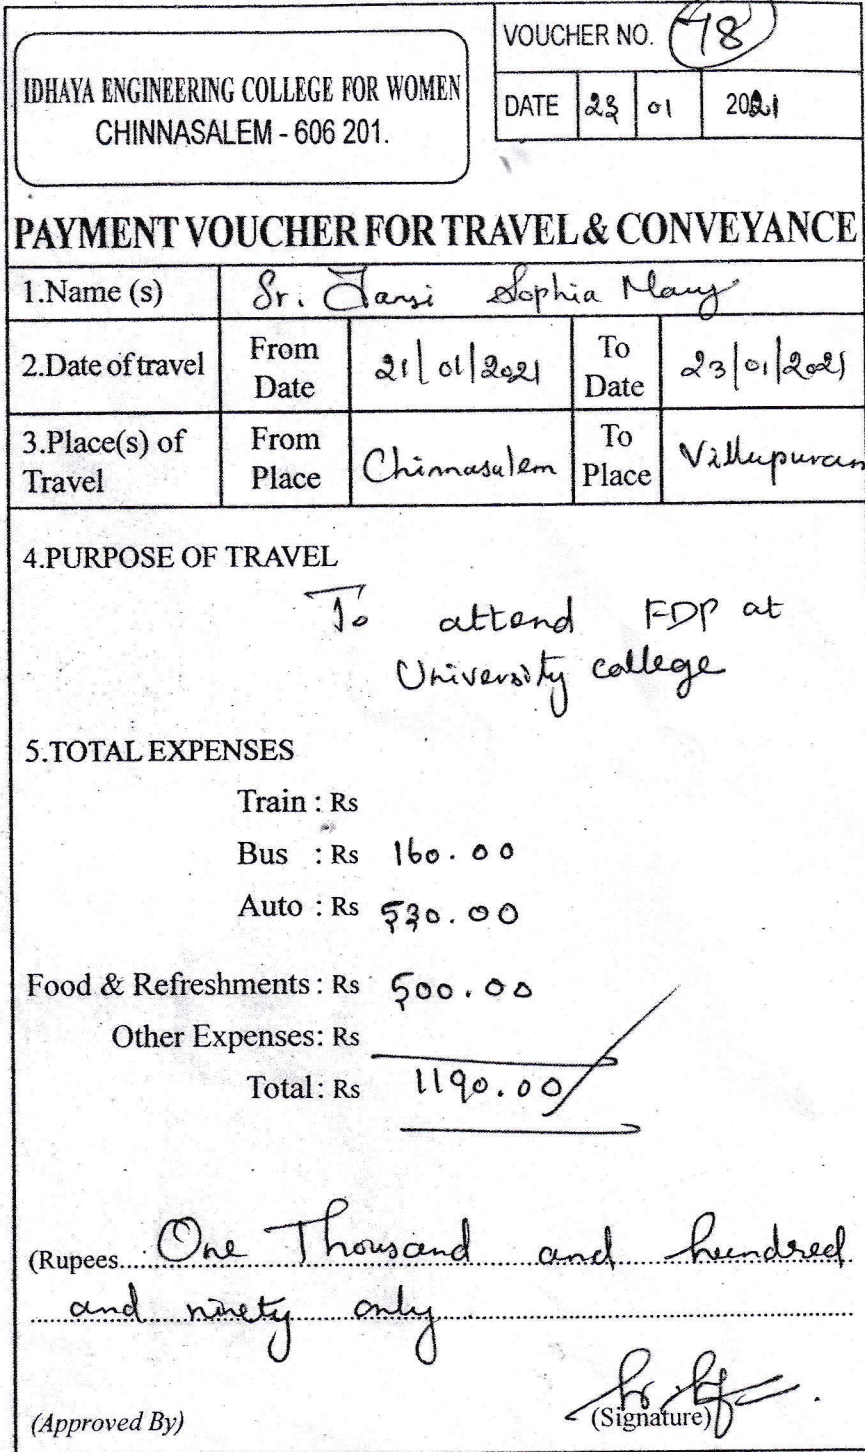 VOUCHER NO. 78
IDHAYA ENGINEERING COLLEGE FOR WOMEN
CHINNASALEM - 606 201.
DATE 23 01 2021
PAYMENT VOUCHER FOR TRAVEL & CONVEYANCE
1.Name (s) Sr. Jansi Sophia Mary
2.Date of travel From Date 21/01/2021 To Date 23/01/2021
3.Place(s) of Travel From Place Chinnasalem To Place Villupuram
4.PURPOSE OF TRAVEL
To attend FDP at
University college
5.TOTAL EXPENSES
Train : Rs
Bus : Rs 160.00
Auto : Rs 530.00
Food & Refreshments : Rs 500.00
Other Expenses: Rs
Total: Rs 1190.00
(Rupees One Thousand and hundred
and ninety only
(Approved By) (Signature)